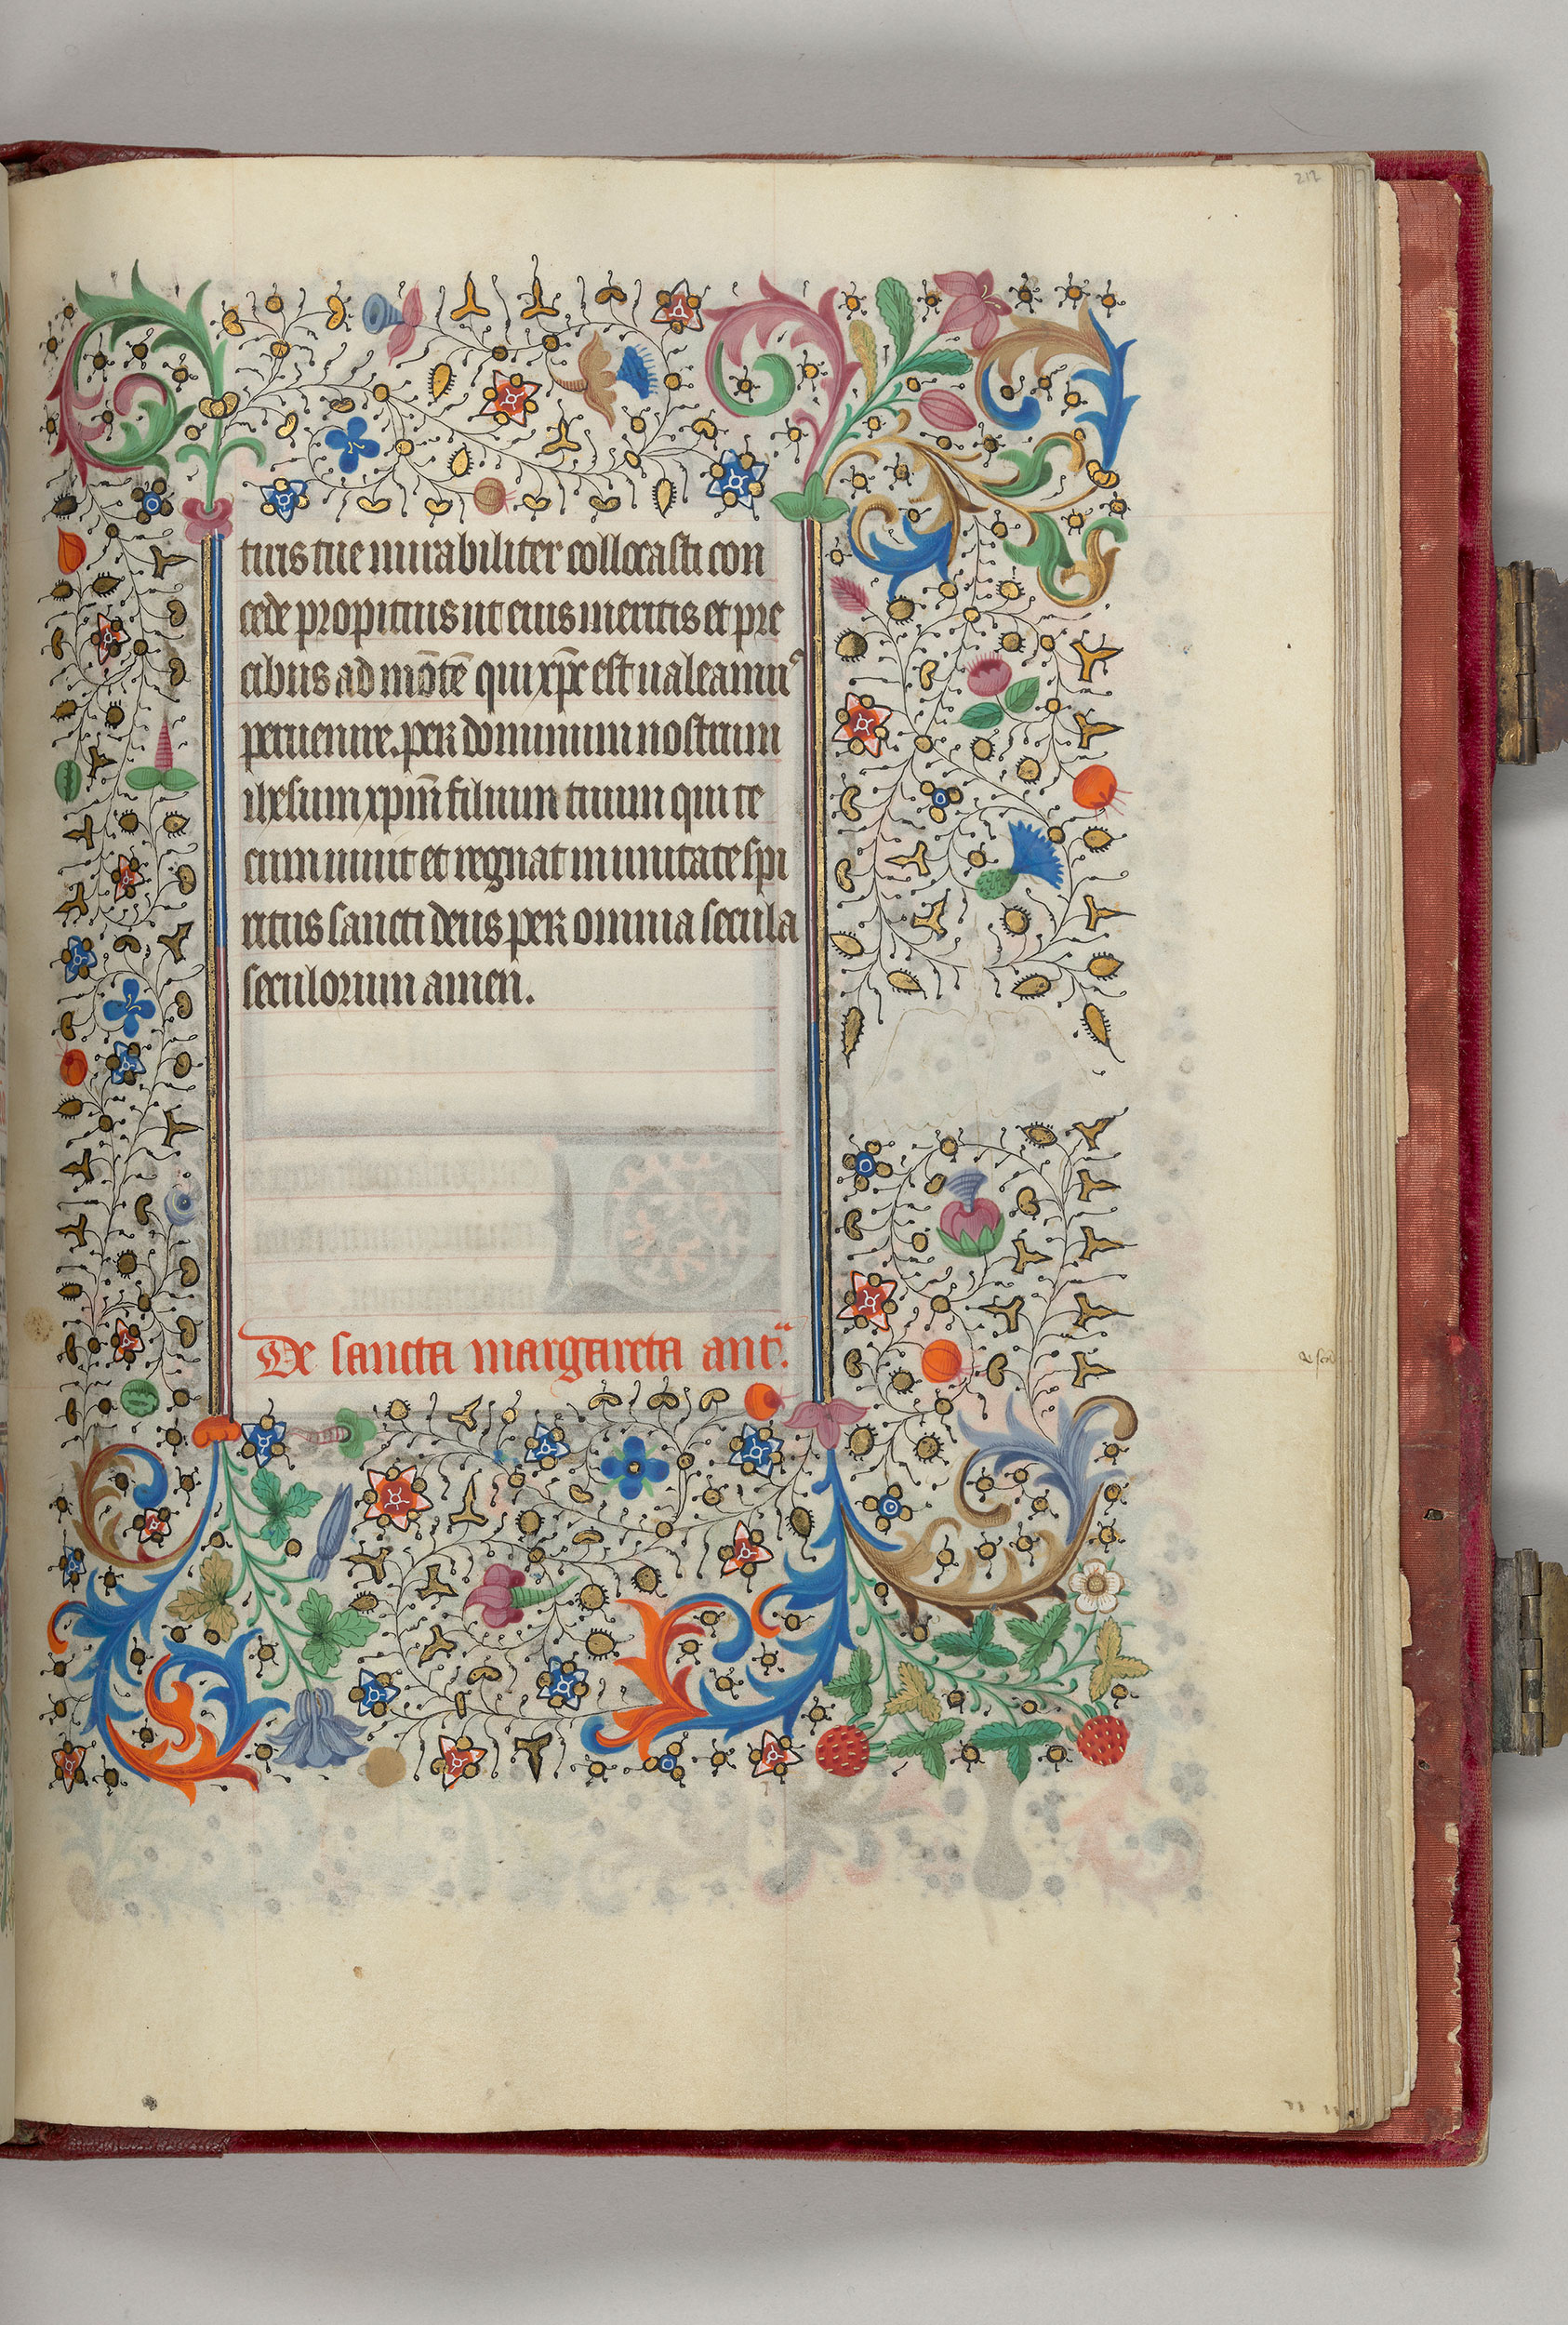 217
tuis tue mirabiliter collocasti con
cede propitius ut eius meritis et pre
cibus ad mōtē qui xp̄c est ualeamuꝰ
peruenire. per dominum nostrum
ihesum xpm̄ filium tuum qui te
cum uiuit et regnat in unitate spi
ritus sancti deus per omnia secula
seculorum amen.
De sancta margareta ant.